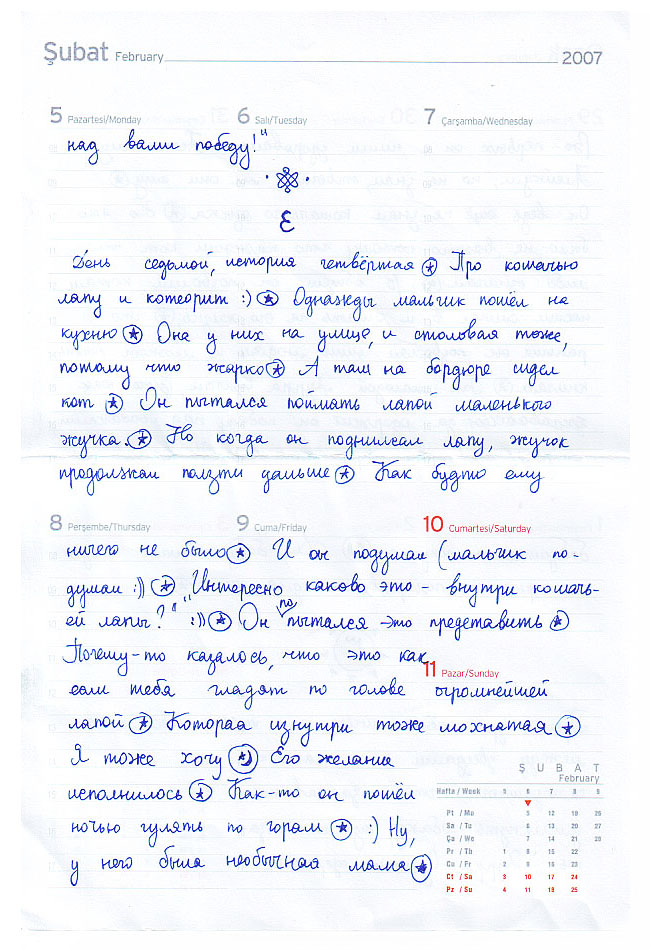 Şubat February 2007
5 Pazartesi/Monday 6 Salı/Tuesday 7 Çarşamba/Wednesday
над вами победу!"
ε
День седьмой, история четвёртая ⍟ Про кошачью
лапу и котеорит :) ⍟ Однажды мальчик пошёл на
кухню ⍟ Она у них на улице, и столовая тоже,
потому что жарко ⍟ А там на бордюре сидел
кот ⍟ Он пытался поймать лапой маленького
жучка. ⍟ Но когда он поднимал лапу, жучок
продолжал ползти дальше ⍟ Как будто ему
8 Perşembe/Thursday 9 Cuma/Friday 10 Cumartesi/Saturday
ничего не было ⍟ И он подумал (мальчик по-
думал :)) ⍟ "Интересно каково это - внутри кошачь-
ей лапы?" :)) ⍟ Он попытался это представить ⍟
Почему-то казалось, что это как
11 Pazar/Sunday
если тебя гладят по голове огромнейшей
лапой ⍟ Которая изнутри тоже мохнатая ⍟
Я тоже хочу ⍟ Его желание
исполнилось ⍟ Как-то он пошёл
ночью гулять по горам ⍟ :) Ну,
у него была необычная мама ⍟
ŞUBAT
February
Hafta / Week 5 6 7 8 9
Pt / Mo 5 12 19 26
Sa / Tu 6 13 20 27
Ça / We 7 14 21 28
Pr / Th 1 8 15 22
Cu / Fr 2 9 16 23
Ct / Sa 3 10 17 24
Pz / Su 4 11 18 25